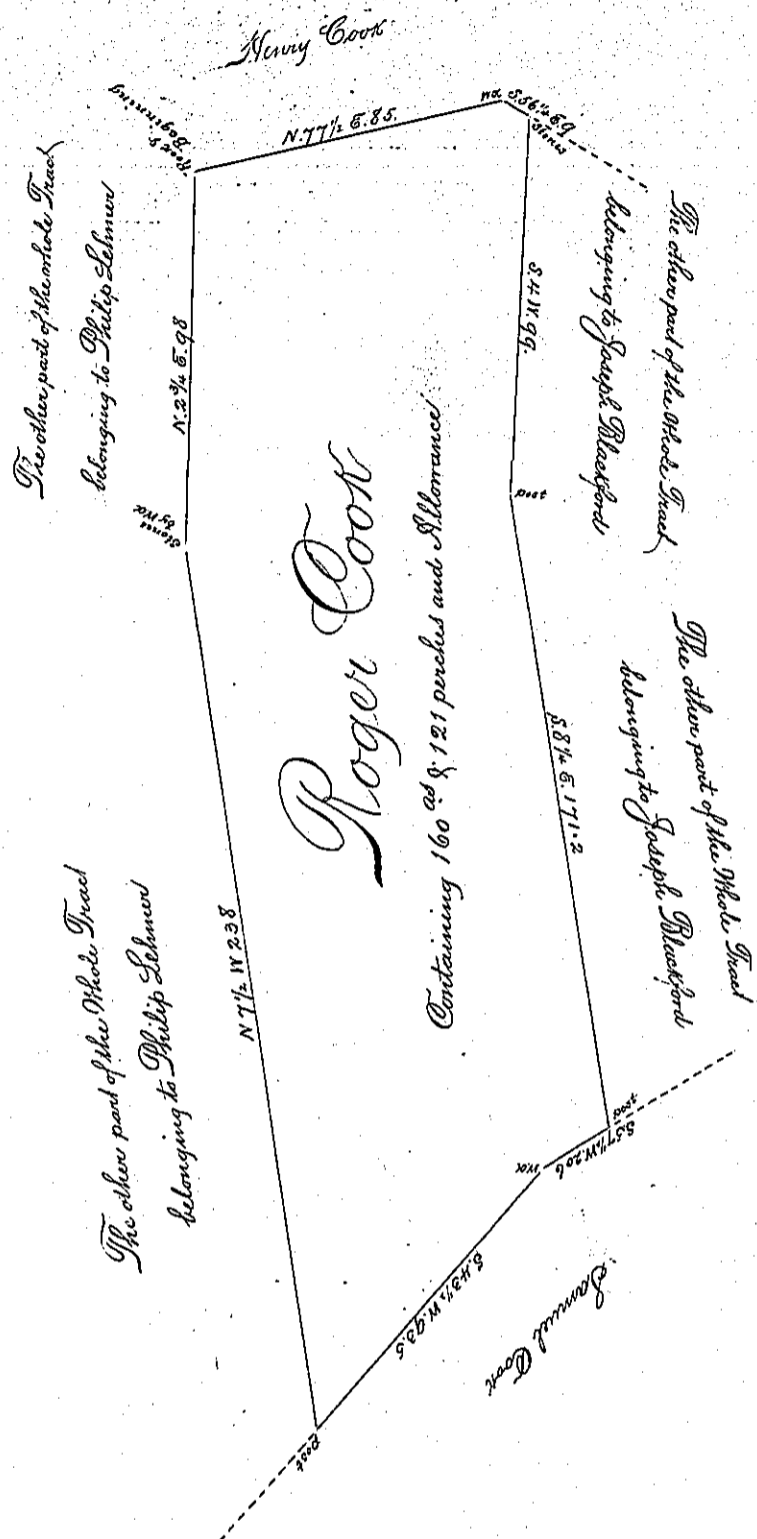 Henry Cook
Post &
Beginning
N.77½ E.85.
wo
S.56½ E.9
stones
The other part of the whole Tract
belonging to Philip Lehmer
N.2¾ E.98
The other part of the Whole Tract
belonging to Joseph Blackford
S.4 W.99.
Stones
by WO
post
Roger Cook
Containing 160 as & 121 perches and Allowance
The other part of the Whole Tract
belonging to Joseph Blackford
S.8¼ E.171.2
The other part of the Whole Tract
belonging to Philip Lehmer
N 7½ W 238
post
S.57½ W.20.6
wo
S.43½ W.93.5
Samuel Cook
post